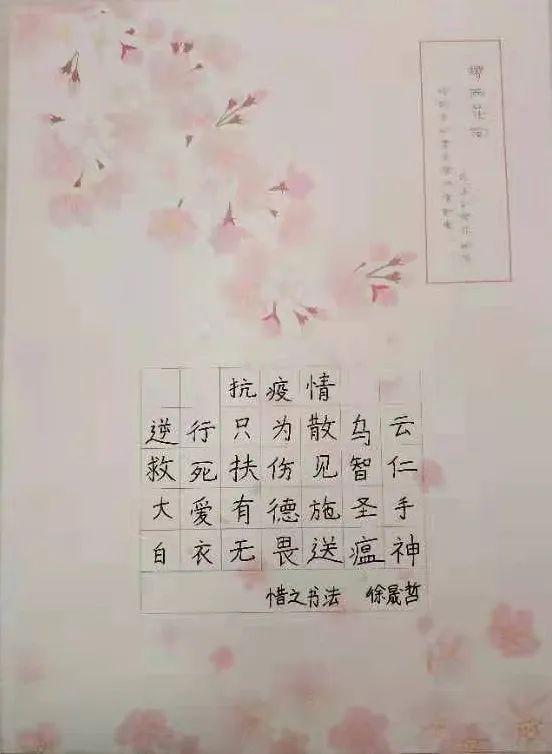 抗疫情
逆行只为散乌云
救死扶伤见智仁
大爱有德施圣手
白衣无畏送瘟神
惜之书法 徐晟哲